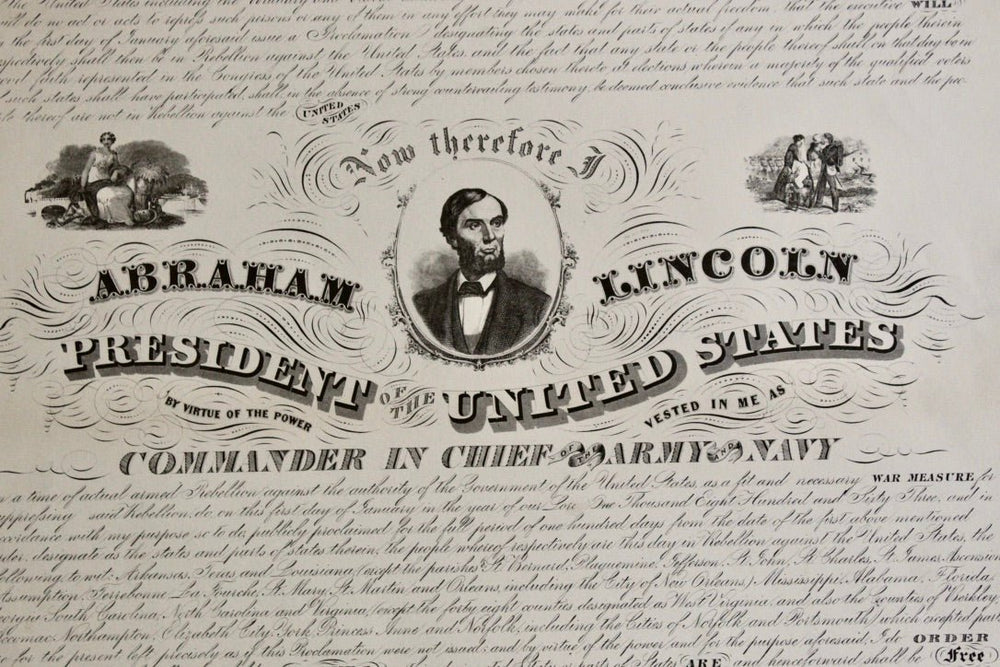 The United States including the
will do no act or acts to repress such persons or any of them in any effort they may make for their actual freedom that the executive WILL
the first day of January aforesaid issue a Proclamation designating the states and parts of states if any in which the people therein
pectively shall then be in Rebellion against the United States and the fact that any state or the people thereof shall on that day be in
faith represented in the Congress of the United States by members chosen thereto at elections wherein a majority of the qualified voters
such states shall have participated, shall, in the absence of strong countervailing testimony be deemed conclusive evidence that such state and the peo-
thereof are not in Rebellion against the UNITED STATES
Now therefore I
ABRAHAM LINCOLN
PRESIDENT OF THE UNITED STATES
BY VIRTUE OF THE POWER VESTED IN ME AS
COMMANDER IN CHIEF OF THE ARMY AND NAVY
a time of actual armed Rebellion against the authority of the Government of the United States, as a fit and necessary WAR MEASURE for
suppressing said Rebellion, do on this first day of January in the year of our Lord One Thousand Eight Hundred and Sixty Three, and in
accordance with my purpose so to do, publicly proclaimed for the full period of one hundred days from the date of the first above mentioned
order, designate as the states and parts of states therein, the people whereof respectively are this day in Rebellion against the United States, the
following to wit: Arkansas, Texas and Louisiana, (except the parishes St. Bernard, Plaquemine, Jefferson, St. John, St. Charles, St. James, Ascension
Assumption, Terrebonne, La Fourche, St. Mary, St. Martin and Orleans, including the City of New Orleans) Mississippi, Alabama, Florida,
Georgia South Carolina, North Carolina and Virginia, (except the forty eight counties designated as West Virginia, and also the Counties of Berkley
Accomac, Northampton, Elizabeth City, York, Princess Anne and Norfolk, including the Cities of Norfolk and Portsmouth) which excepted parts
for the present left precisely as if this Proclamation were not issued: and by virtue of the power and for the purpose aforesaid, I do ORDER
States or parts of States ARE and henceforward shall be Free